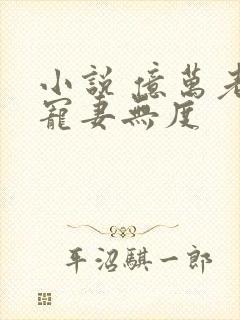 小說 億萬老
寵妻無度
平沼騏一郎